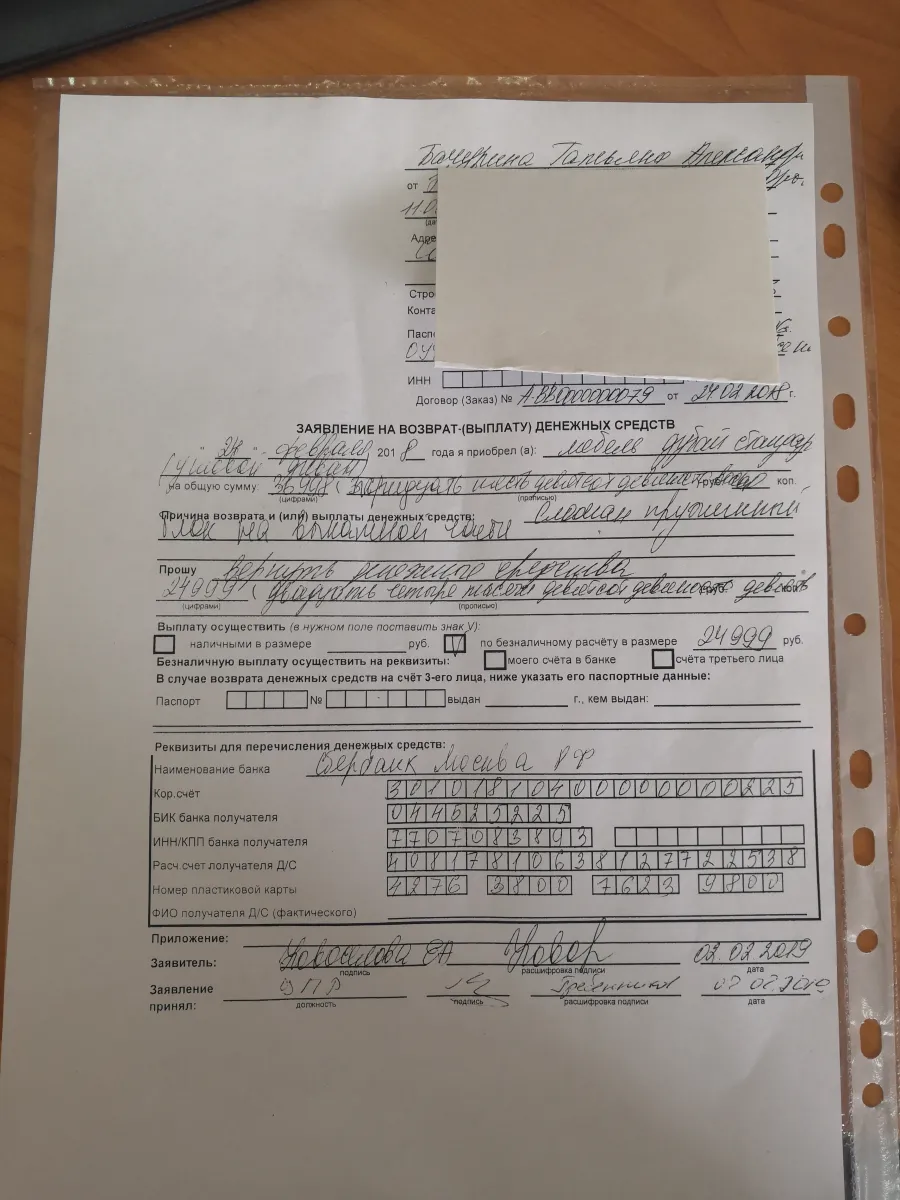 Бачурина Татьяна Александр
от
11.0
Адре
Стро
Конта
Пасп
ОУ
ИНН
Договор (Заказ) № АВВ0000000079 от 24.02.2018 г.
ЗАЯВЛЕНИЕ НА ВОЗВРАТ-(ВЫПЛАТУ) ДЕНЕЖНЫХ СРЕДСТВ
"24" февраля 2018 года я приобрел (а): мебель
(угловой диван)
на общую сумму: 36998 (тридцать шесть девятьсот девяносто руб. коп.
(цифрами) (прописью)
Причина возврата и (или) выплаты денежных средств: Сломан пружинный
блок на выкатной части
Прошу вернуть денежные средства
24999 (двадцать четыре тысячи девятьсот девяносто девять руб. коп
(цифрами) (прописью)
Выплату осуществить (в нужном поле поставить знак V):
наличными в размере руб. V по безналичному расчёту в размере 24999 руб.
Безналичную выплату осуществить на реквизиты: моего счёта в банке счёта третьего лица
В случае возврата денежных средств на счёт 3-его лица, ниже указать его паспортные данные:
Паспорт № выдан г., кем выдан:
Реквизиты для перечисления денежных средств:
Наименование банка Сбербанк Москва РФ
Кор.счёт 30101810400000000225
БИК банка получателя 044525225
ИНН/КПП банка получателя 7707083893
Расч.счет получателя Д/С 40817810638127722538
Номер пластиковой карты 4276 3800 7623 9800
ФИО получателя Д/С (фактического)
Приложение:
Заявитель: Новоселова 02.02.2019
подпись расшифровка подписи дата
Заявление Гребенников
принял: должность подпись расшифровка подписи дата